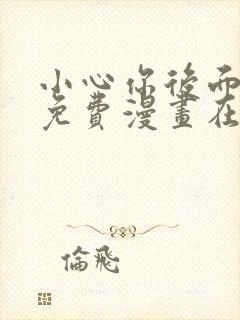 小心你後面
免費漫畫在
倫飛